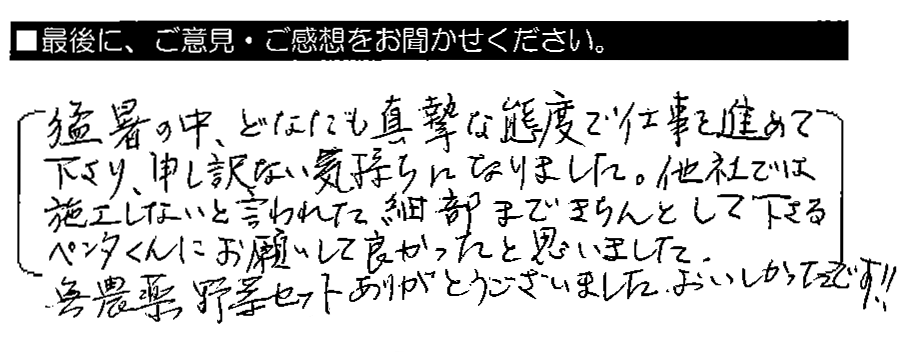 ■最後に、ご意見・ご感想をお聞かせください。
猛暑の中、どなたも真摯な態度で仕事を進めて
下さり、申し訳ない気持ちになりました。他社では
施工しないと言われた細部まできちんとして下さる
ペンタくんにお願いして良かったと思いました。
無農薬野菜セットありがとうございました。おいしかったです!!